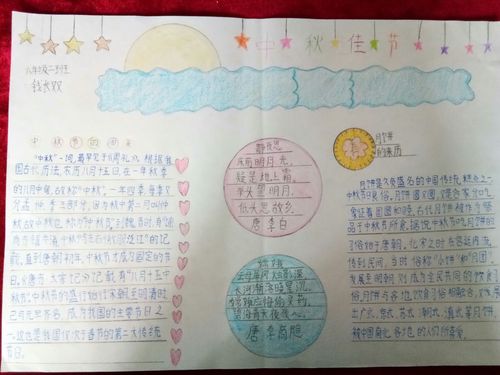 中秋佳节
六年级二班
中秋节的由来
"中秋"一词,最早见于《周礼》。根据我
国古代历法,农历八月十五日,在一年秋季
的八月中旬,故称"中秋"。一年四季,每季又
分孟、仲、季三部分,因为秋中第二月叫仲
秋,故中秋也称为"仲秋"。到魏晋时,有"谕
尚书镇牛渚,中秋夕与左右微服泛江"的记
载。直到唐朝初年,中秋节才成为固定的节
日。《唐书·太宗记》记载有"八月十五中
秋节"。中秋节的盛行始于宋朝,至明清时,
已与元旦齐名,成为我国的主要节日之
一。这也是我国仅次于春节的第二大传统
节日。
静夜思
床前明月光,
疑是地上霜。
举头望明月,
低头思故乡。
唐 李白
嫦娥
云母屏风烛影深,
长河渐落晓星沉。
嫦娥应悔偷灵药,
碧海青天夜夜心。
唐 李商隐
月饼
的来历
月饼是久负盛名的中国传统糕点之一,
中秋节日食俗。月饼圆又圆,又是合家分吃,
象征着团圆和睦,在古代月饼被作为祭
品于中秋节所食。据说中秋节吃月饼的
习俗始于唐朝。北宋之时,在宫廷内流
传到民间,当时俗称"小饼"和"月团"。
发展至明朝则成为全民共同的饮食习
俗。月饼与各地饮食习俗相融合,又发展
出广式、京式、苏式、潮式、滇式等月饼,
被中国南北各地的人们所喜爱。